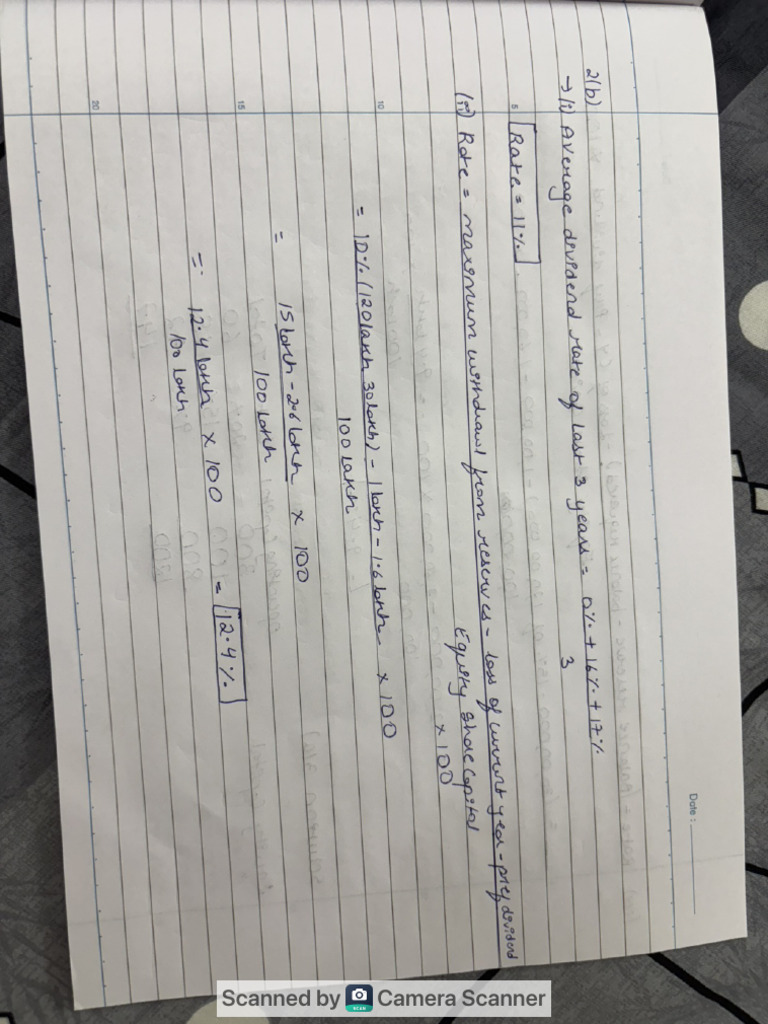 Date :
2(b)
→ (i) Average dividend rate of last 3 years = 0% + 16% + 17%
3
5
Rate = 11%
(ii) Rate = maximum withdrawl from reserves - loss of current year - pref dividend
Equity Share Capital
× 100
10
= 10% (120 lakh 30 lakh) - 1 lakh - 1.6 lakh × 100
100 lakh
= 15 lakh - 2.6 lakh × 100
100 lakh
15
= 12.4 lakh × 100 = 12.4%
100 lakh
20
Scanned by Camera Scanner